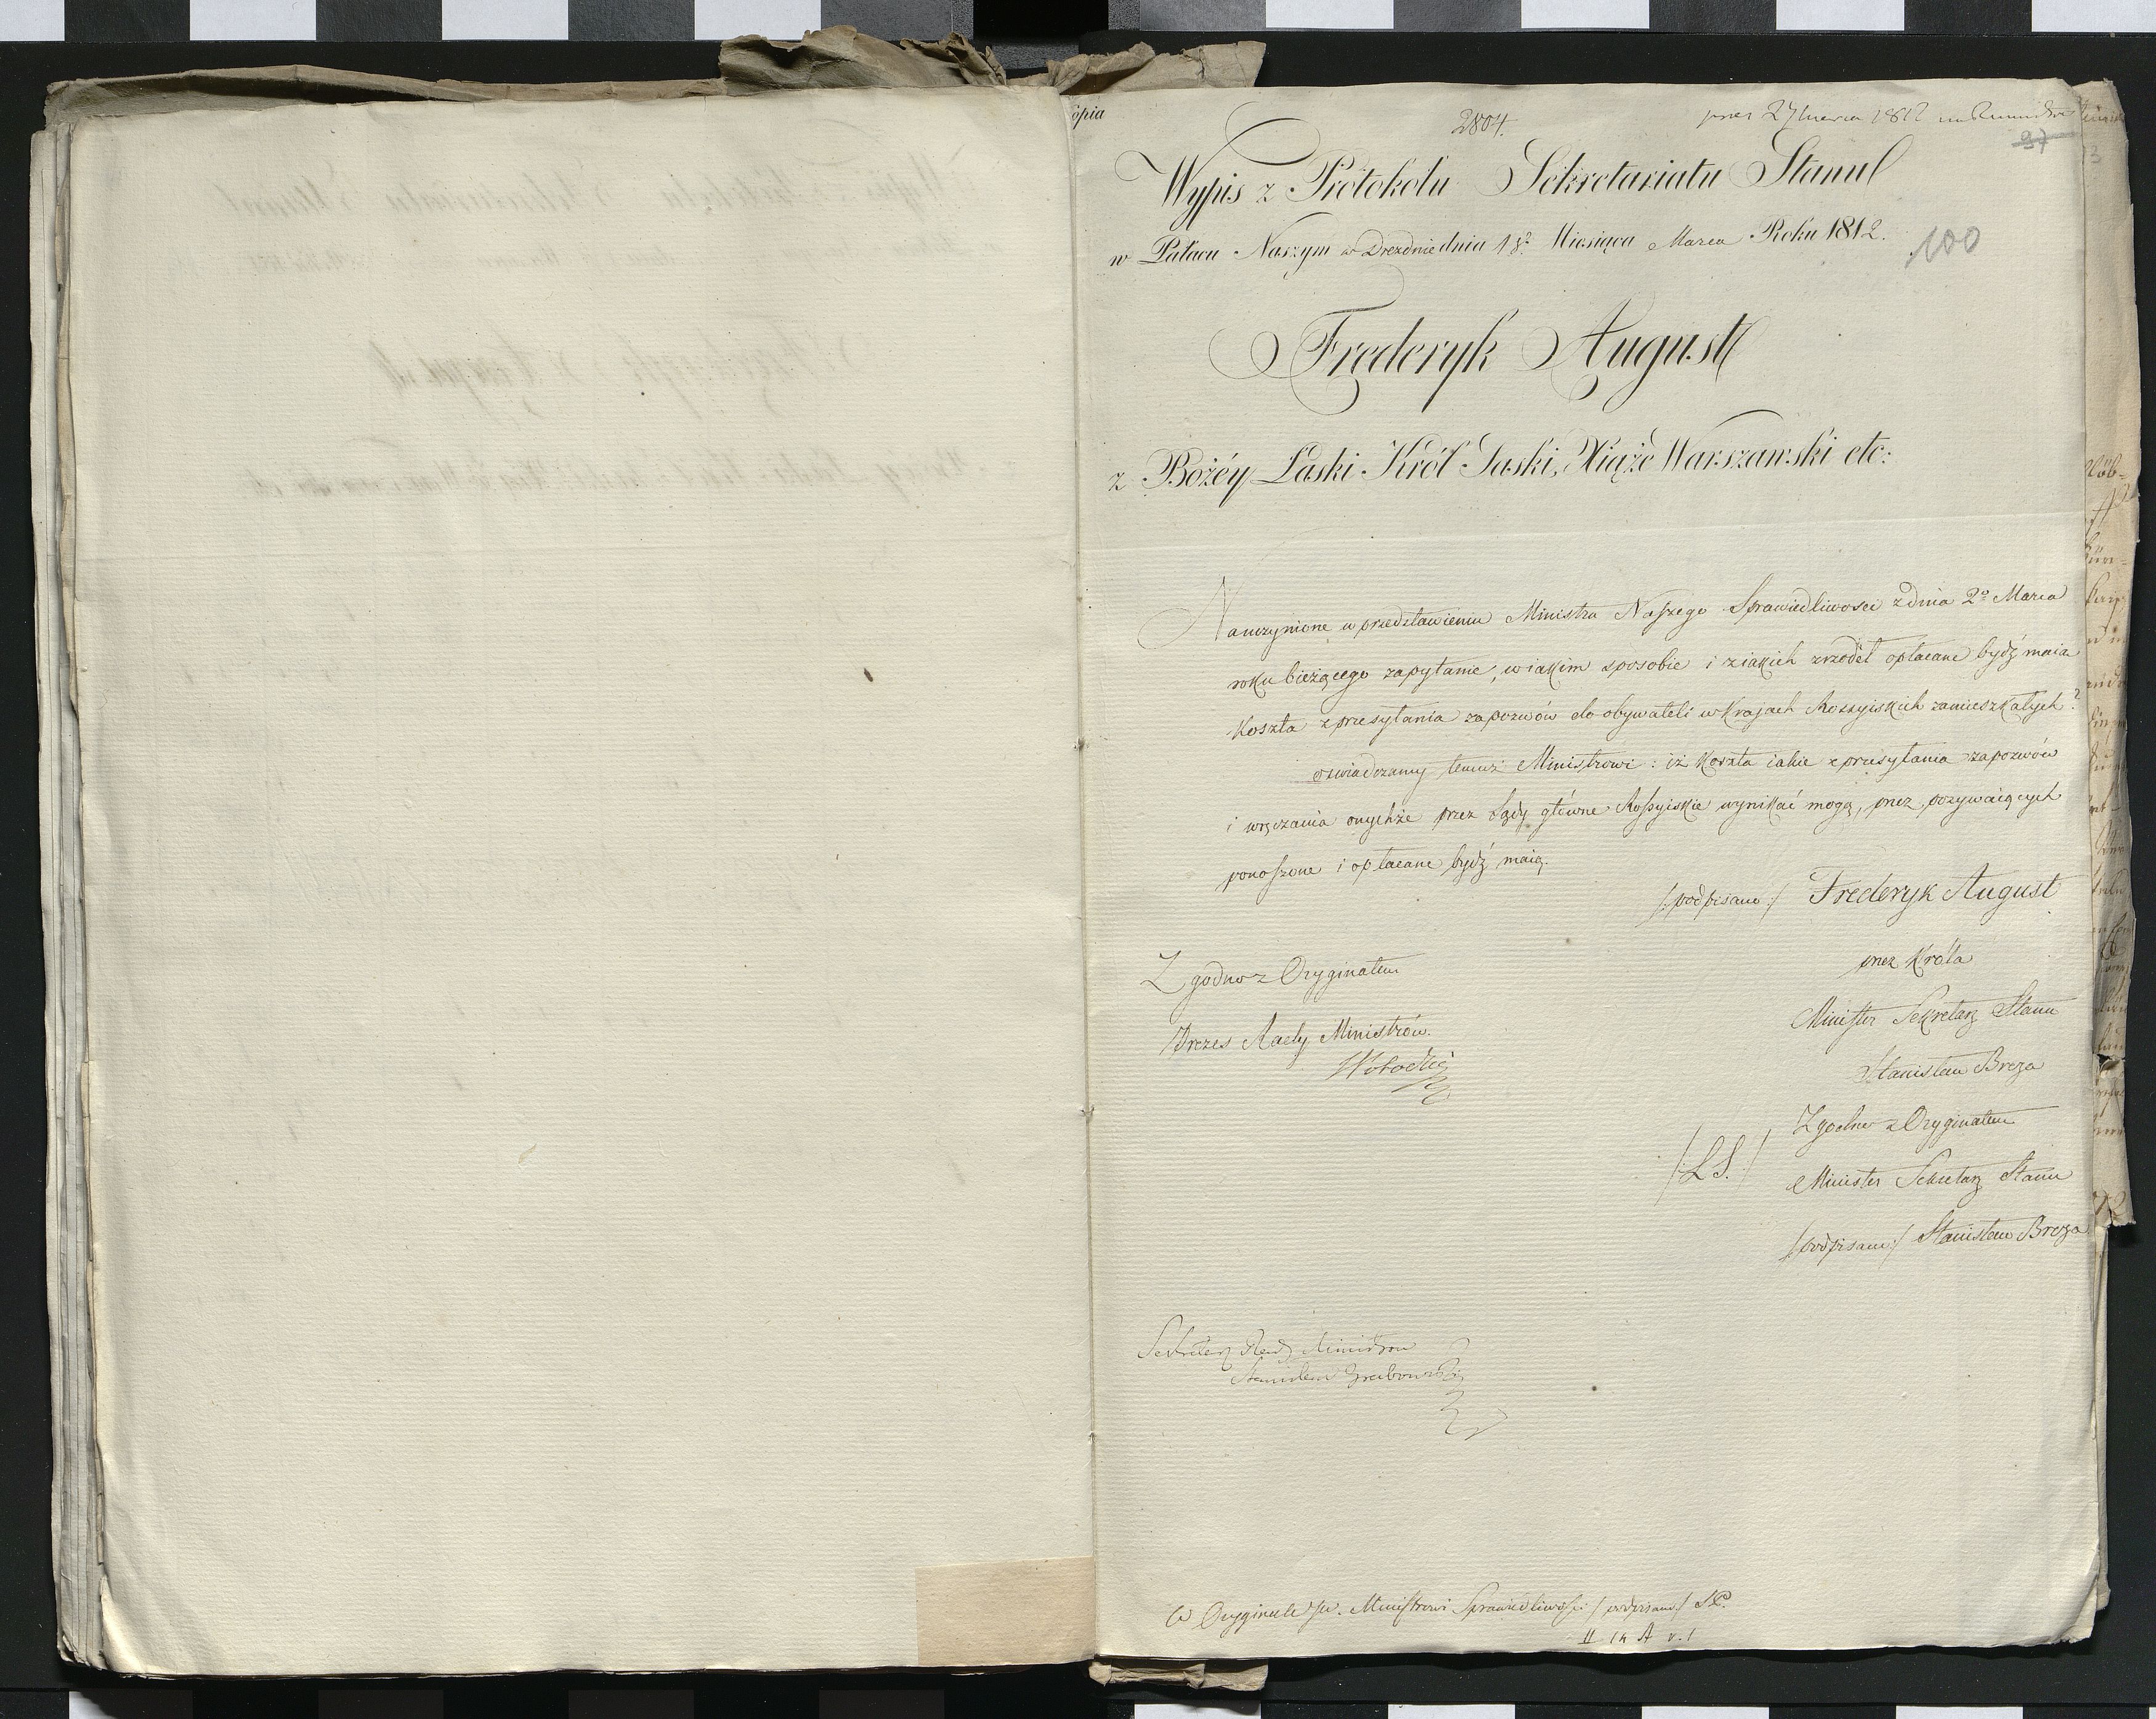 opia
2804.
97
Wypis z Protokolu Sekretariatu Stanu
w Pałacu Naszym w Dreznie dnia 18º Miesiąca Marca Roku 1812.
100
Frederyk August
z Bożéy Łaski Król Saski, Xiąże Warszawski etc:
Na uczynione w przedstawieniu Ministra Naszego Sprawiedliwosci z dnia 2º Marca
roku bieżącego zapytanie, w iakim sposobie i z iakich zrzodeł opłacane bydź maią
koszta z przesyłania zapozwów do obywateli w krajach Rossyiskich zamieszkałych?
oswiadczamy temuż Ministrowi: iż koszta iakie z przesyłania zapozwów
i wręczania onychże przez Sądy główne Rossyiskie wynikać mogą, przez pozywaiących
ponoszone i opłacane bydź maią.
/:podpisano:/ Frederyk August
przez Króla
Minister Sekretarz Stanu
Stanisław Breza
Zgodno z Oryginałem
Prezes Rady Ministrów.
Zgodno z Oryginałem
/:L.S.:/
Minister Sekretarz Stanu
/:podpisano:/ Stanisław Breza
Sekretarz Rady Ministrow
Stanisław Grabowski
W Oryginale JW. Ministrowi Sprawiedliwości /:podpisano:/
II 14 A v. 1